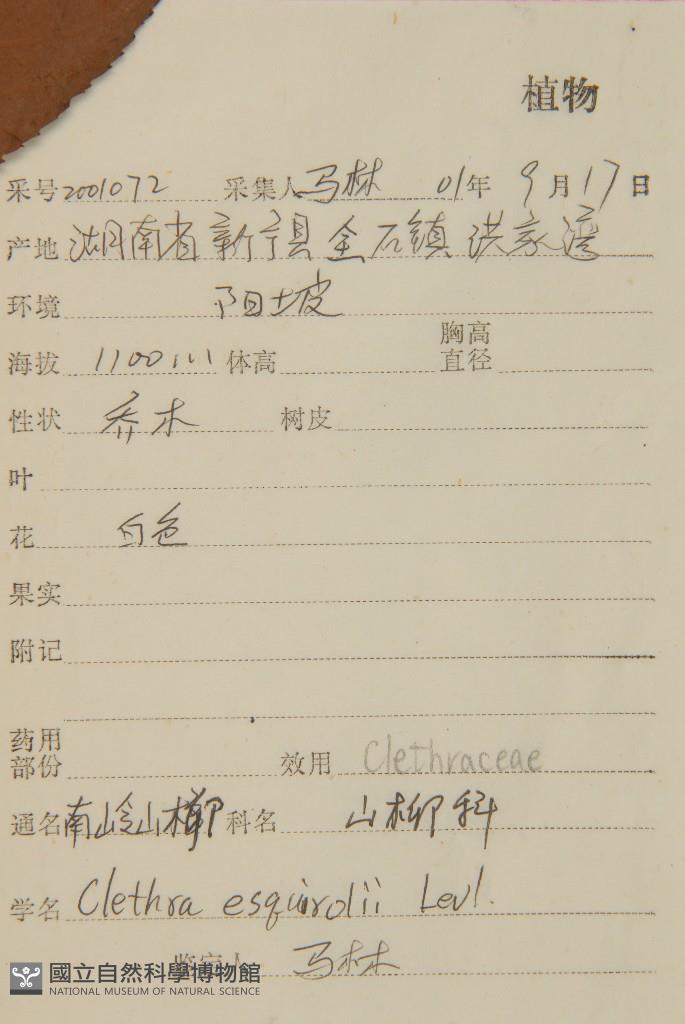 植物
采号 2001072 采集人 马林 01年 9月17日
产地 湖南省新宁县金石镇洪家湾
环境 阳坡
海拔 1100m 体高 胸高直径
性状 乔木 树皮
叶
花 白色
果实
附记
药用部份 效用 Clethraceae
通名 南岭山柳 科名 山柳科
学名 Clethra esquirolii Levl.
鉴定人 马林
國立自然科學博物館
NATIONAL MUSEUM OF NATURAL SCIENCE